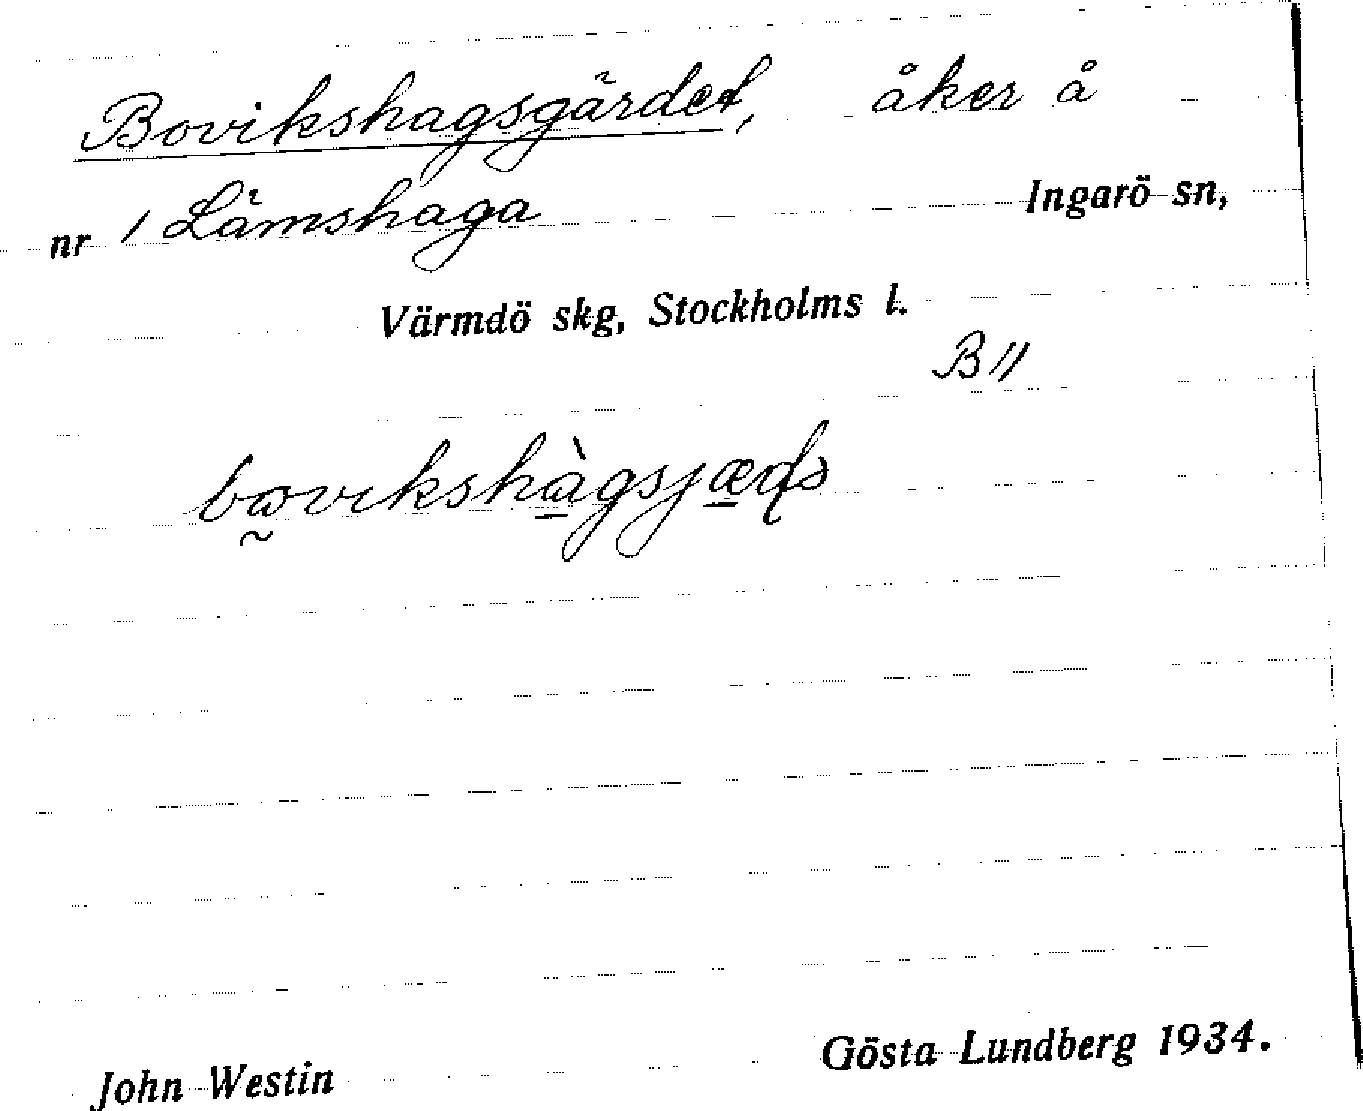 Bovikshagsgärdet, åker å
nr 1 Lämshaga Ingarö sn,
Värmdö skg, Stockholms l.
B 11
John Westin Gösta Lundberg 1934.